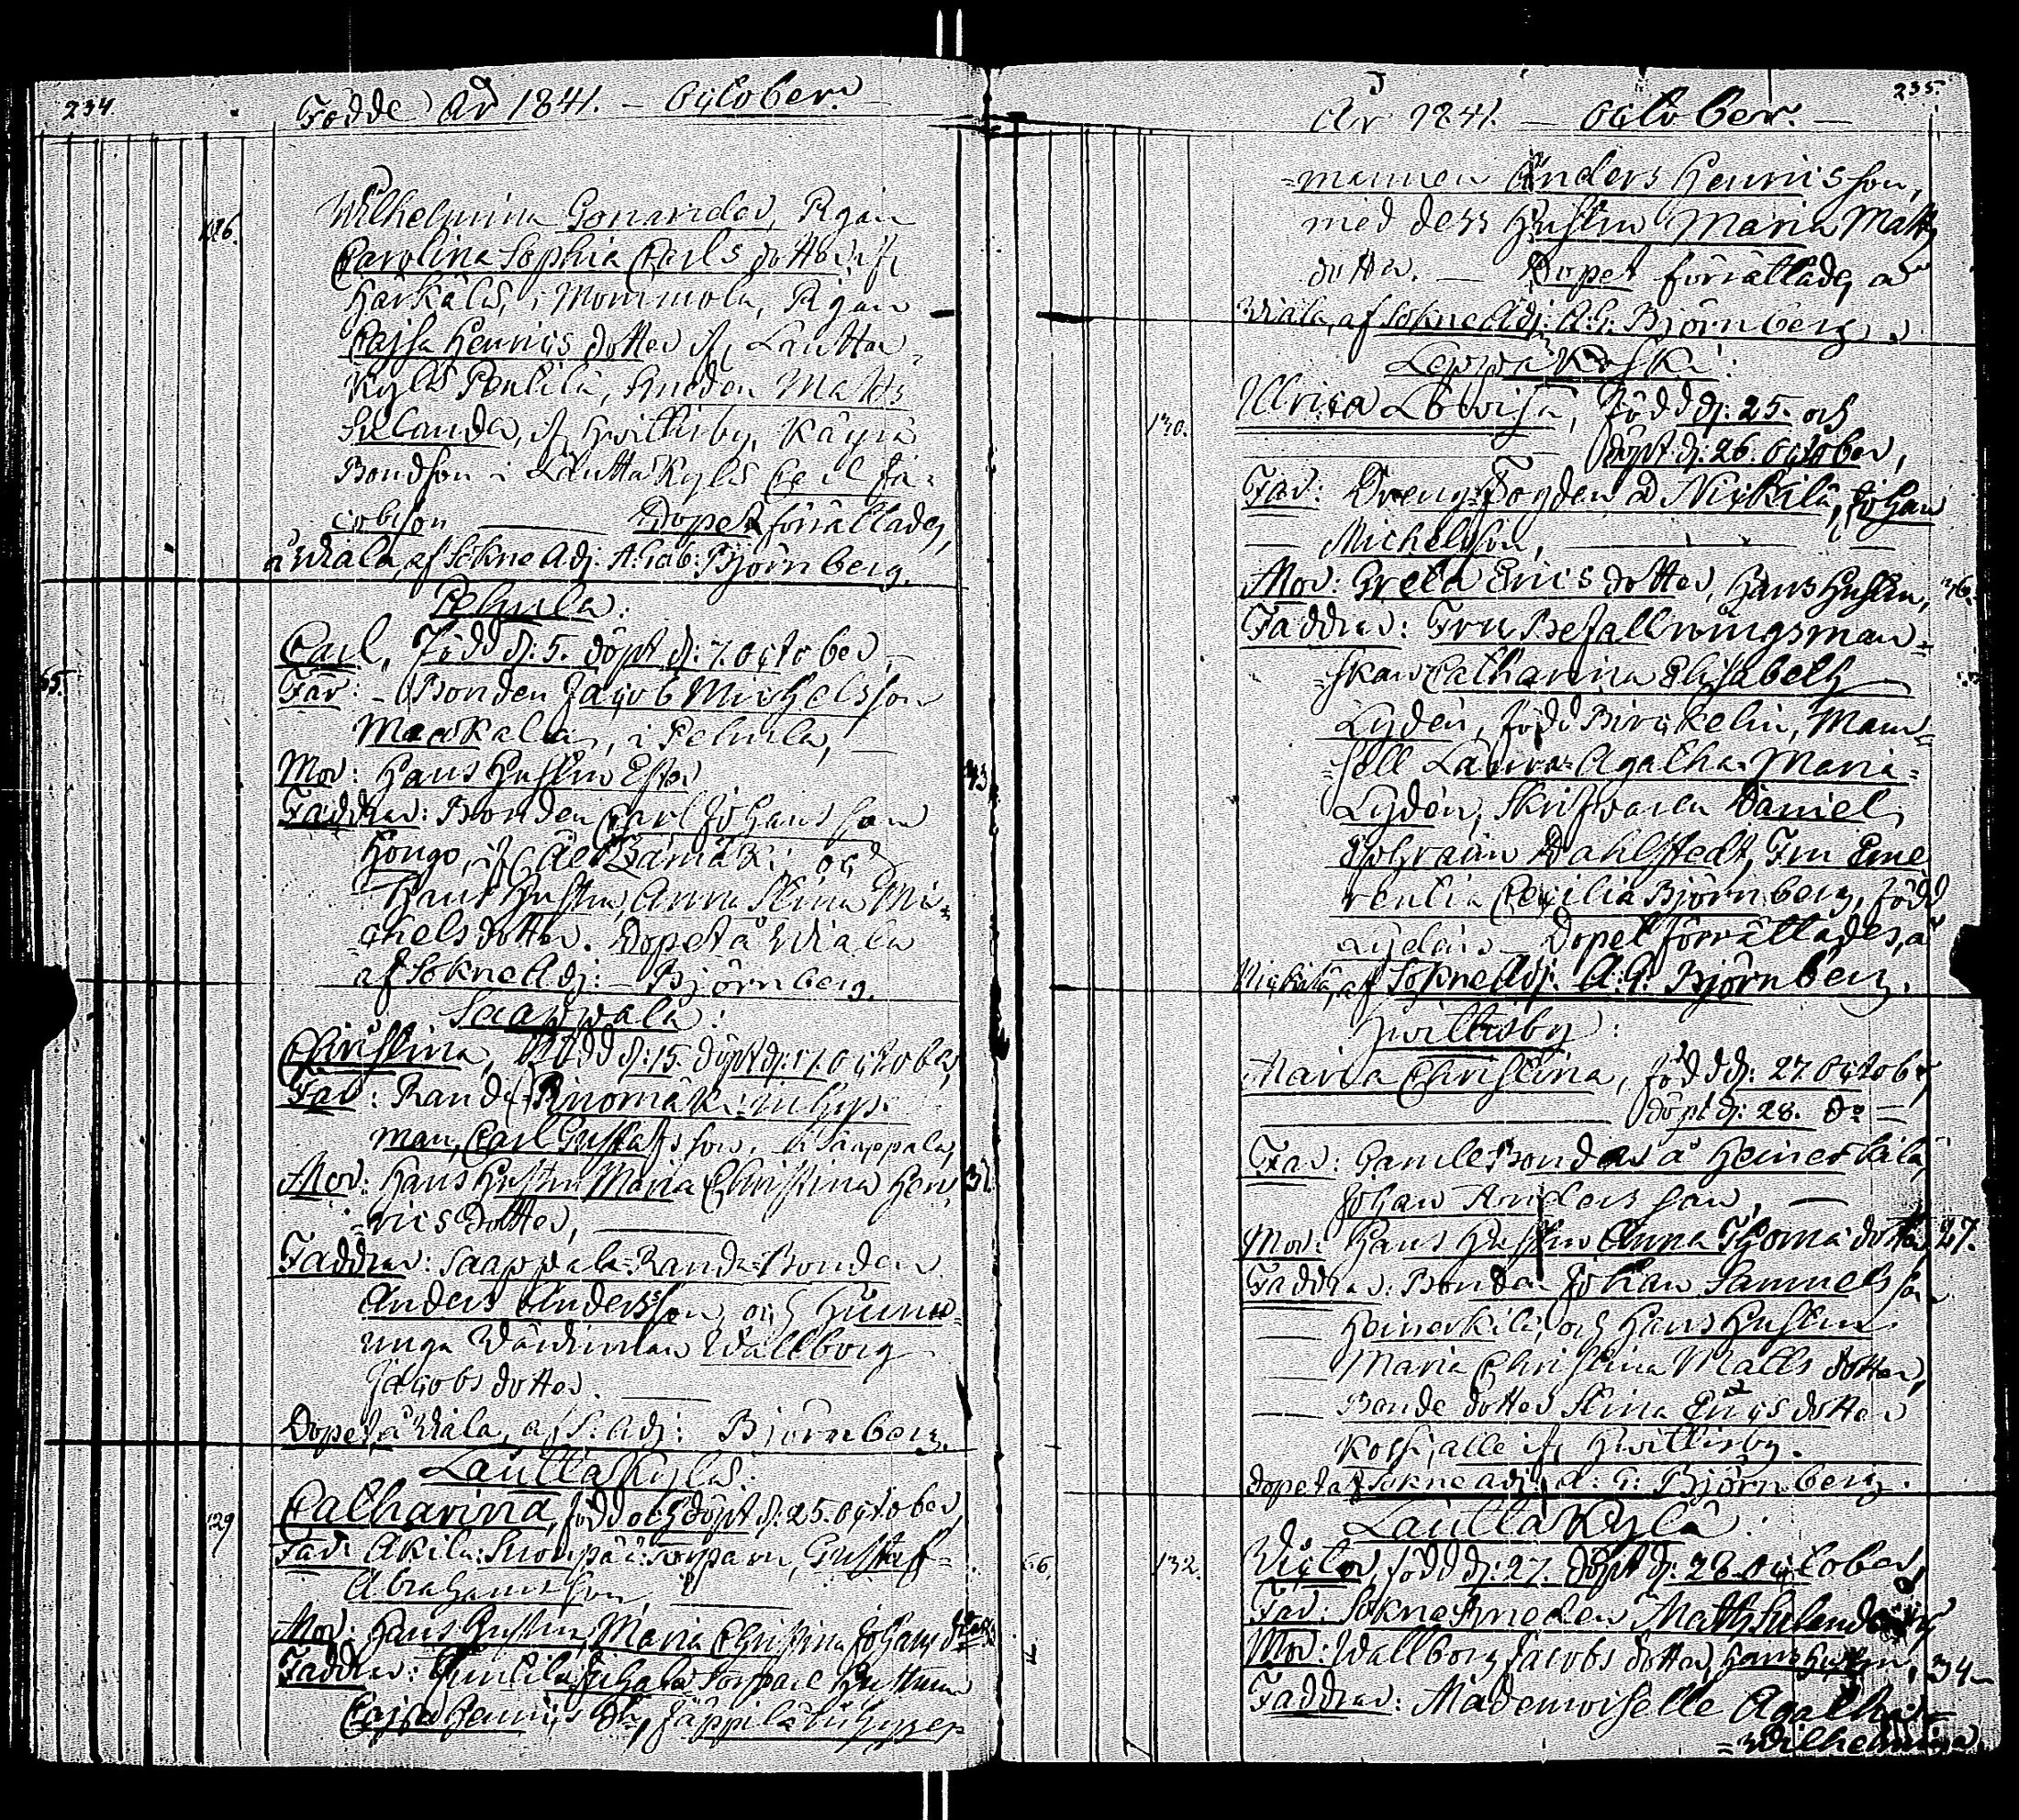 234.
Födde År 1841. — October.
Wilhelmina Gonander, Pigan
126.
Carolina Sophia Carls dotter, if
Härkälä, i Mommola, Pigan
Cajsa Henrics dotter if Lautta-
kylä Pentilä, Smeden Matts
Selander, if Hvittisby, Käyrä
Bondson i Lauttakylä Carl Ja-
cobsson — Dopet förrättades,
å Wiala, af Sokne Adj: A: Gab: Björnberg.
Pehula:
Carl, Född d: 5. döpt d: 7. October,
65.
Far: Bonden Jacob Michelsson
Maukala, i Pehula,
Mor: Hans Hustru Ester
43
Faddrar: Bonden Carl Johansson
Hongo, if och
Hans Hustru, Anna Stina Mi-
chelsdotter. Dopet å Wiala
af Sokne Adj: Björnberg.
Saappala:
Christina, Född d: 15. döpt d: 17. October,
Far: Randa inhyses
man, Carl Gustafsson, å Saappala,
Mor: Hans Hustru Maria Christina Hen-
31.
rics dotter,
Faddrar: Saappala-Randa-Bonden
Anders Andersson och
unga Värdinnan Wallborg
Jacobs dotter.
Dopet, å Wiala, af S: Adj: Björnberg.
Lauttakylä:
Catharina, född och döpt d: 25. October,
129
Far: Akila: Torparn, Gustaf
Abrahamsson,
Mor: Hans Hustru, Maria Christina Johans
Faddrar: Torpare Hustrun
Cajsa Henrics dr, Jäppilä Inhyses
235.
År 1841. — October. —
-mannen Anders Henricsson,
med dess Hustru Maria Matts
dotter. — Dopet förrättades å
Wiala, af Sokne Adj: A: G: Björnberg.
Leppäkoski:
Ulrica Lovisa, född d: 25. och
130.
döpt d: 26. October,
Far: Dreng-Fogden å Nickilä, Johan
Michelsson,
Mor: Greta Erics dotter, Hans Hustru,
36.
Faddrar: Fru Befallningsman-
skan Catharina Elisabeth
Lydén, född Birckelin, Mam-
sell Laura Agatha Maria
Lydén, Skrifvaren Daniel
Ephraim Dahlstedt, Fru Eme
rentia Cecilia Björnberg, född
Dopet förrättades, å
Nickilä, af Sokne Adj. A: G: Björnberg.
Hvittisby:
Maria Christina, född d: 27 October,
döpt d: 28. do —
Far: Gamle Bonden å Heinerkilä,
Johan Andersson, —
Mor: Hans Hustru Anna Thoma dotter,
27.
Faddrar: Bonden Johan Samuelsson
Heinerkilä, och Hans Hustru
Maria Christina Matts dotter,
Bonde dotter Stina Erics dotter
Kossi, alle if Hvittisby.
Dopet af Sokne adj: A: G: Björnberg.
Lauttakylä:
Victor, född d: 27. döpt d: 28. October,
66.
132.
Far: Sokne Smeden Matts Selander
Mor: Wallborg Jacobs dotter, Hans Hustru,
34
Faddrar: Mademoiselle Agatha
-Wilhelmina